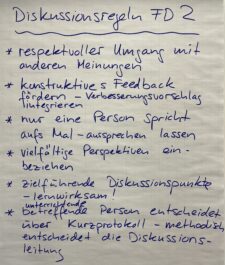 Diskussionsregeln FD 2
* respektvoller Umgang mit
anderen Meinungen
* konstruktives Feedback
fördern - Verbesserungsvorschlag
integrieren
* nur eine Person spricht
aufs Mal - aussprechen lassen
* vielfältige Perspektiven ein-
beziehen
* zielführende Diskussionspunkte
- lernwirksam!
unterrichtende
* betreffende Person entscheidet
über Kurzprotokoll - methodisch
entscheidet die Diskussions-
leitung